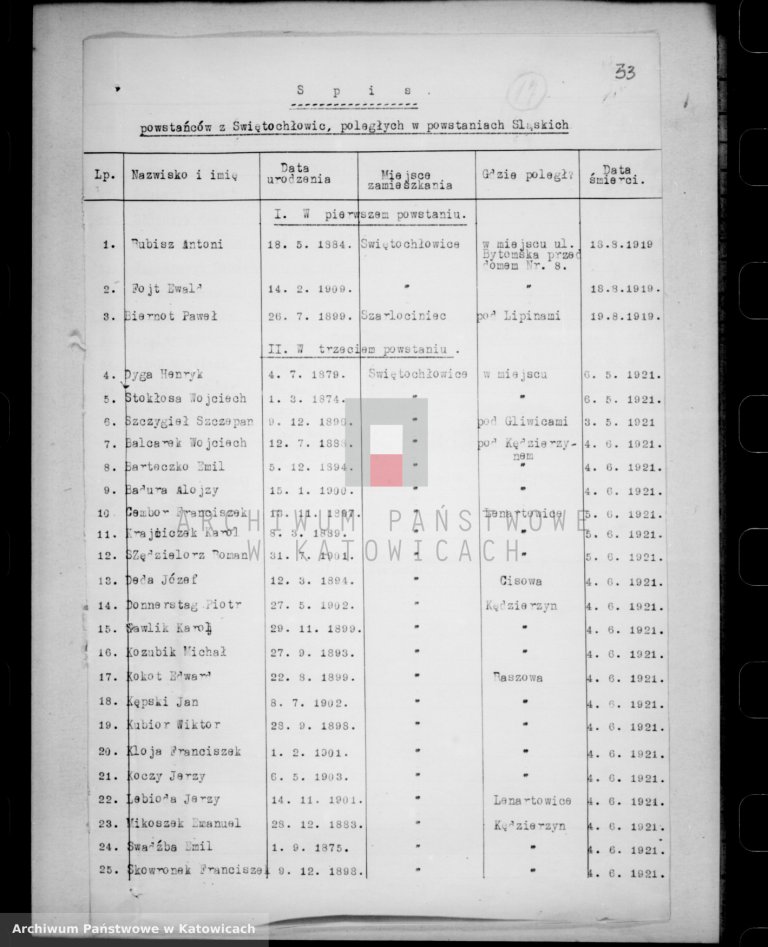 33
S p i s .
powstańców z Swiętochłowic, poległych w powstaniach Sląskich
Lp. Nazwisko i imię Data urodzenia Miejsce zamieszkania Gdzie poległ? Data śmierci.
I. W pierwszem powstaniu.
1. Rubisz Antoni 18. 5. 1884. Swiętochłowice w miejscu ul. 18.8.1919
Bytomska przed
domem Nr. 8.
2. Fojt Ewald 14. 2. 1909. " " 18.8.1919.
3. Biernot Paweł 26. 7. 1899. Szarlociniec pod Lipinami 19.8.1919.
II. W trzeciem powstaniu .
4. Dyga Henryk 4. 7. 1879. Swiętochłowice w miejscu 6. 5. 1921.
5. Stokłosa Wojciech 1. 3. 1874. " " 6. 5. 1921.
6. Szczygieł Szczepan 9. 12. pod Gliwicami 3. 5. 1921
7. Balcarek Wojciech 12. 7. " pod Kędzierzy- 4. 6. 1921.
nem
8. Barteczko Emil 5. 12. 1894. " " 4. 6. 1921.
9. Badura Alojzy 15. 1. 1900. " " 4. 6. 1921.
10 Cembor Franciszek 11. 1897. " Lenartowice 5. 6. 1921.
11. Karol 8. 3. 1889. " " 5. 6. 1921.
12. SZędzielorz Roman 31. 7. 1901. " " 5. 6. 1921.
13. Deda Józef 12. 3. 1894. " Cisowa 4. 6. 1921.
14. Donnerstag Piotr 27. 5. 1902. " Kędzierzyn 4. 6. 1921.
15. Gawlik Karol 29. 11. 1899. " " 4. 6. 1921.
16. Kozubik Michał 27. 9. 1893. " " 4. 6. 1921.
17. Kokot Edward 22. 8. 1899. " Raszowa 4. 6. 1921.
18. Kępski Jan 8. 7. 1902. " " 4. 6. 1921.
19. Kubior Wiktor 28. 9. 1898. " " 4. 6. 1921.
20. Kloja Franciszek 1. 2. 1901. " " 4. 6. 1921.
21. Koczy Jerzy 6. 5. 1903. " " 4. 6. 1921.
22. Lebioda Jerzy 14. 11. 1901. " Lenartowice 4. 6. 1921.
23. Mikoszek Emanuel 28. 12. 1883. " Kędzierzyn 4. 6. 1921.
24. Swadźba Emil 1. 9. 1875. " " 4. 6. 1921.
25. Skowronek Franciszek 9. 12. 1898. " " 4. 6. 1921.
ARCHIWUM PAŃSTWOWE
W KATOWICACH
Archiwum Państwowe w Katowicach